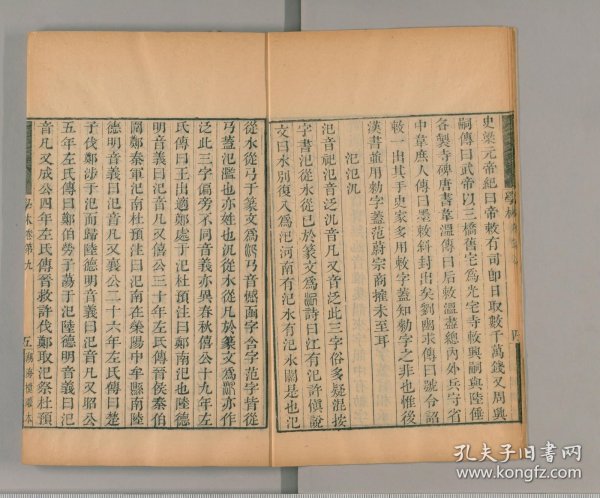 史梁元帝紀曰帝敕有司即日取數千萬錢又周興
嗣傳曰武帝以三橋舊宅為光宅寺敕興嗣與陸倕
各製寺碑唐書韋溫傳曰后敕溫盡總內外兵守省
中韋庶人傳曰墨敕斜封出矣劉幽求傳曰號令詔
敕一出其手史家多用敕字蓋知勑字之非也惟後
漢書並用勑字蓋范蔚宗商搉未至耳
汜氾汎
汜音祀氾音泛汎音凡又音泛此三字俗多疑混按
字書汜從水從巳於篆文為
詩曰江有汜許慎說
文曰水別復入為汜河南有汜水有汜水關是也氾
從水從弓于篆文為
弓音憾函字含字范字皆從
弓蓋氾濫也亦姓也汎從水從凡於篆文為
亦作
泛此三字偏旁不同音義亦異春秋僖公十九年左
氏傳曰王出適鄭處于氾杜預注曰鄭南氾也陸德
明音義曰氾音凡又僖公三十年左氏傳晉侯秦伯
圍鄭秦軍氾南杜預注曰氾南在滎陽中牟縣南陸
德明音義曰氾音凡又襄公二十六年左氏傳曰楚
子伐鄭涉于氾而歸陸德明音義曰氾音凡又昭公
五年左氏傳曰鄭伯勞子蕩于氾陸德明音義曰氾
音凡又成公四年左氏傳晉救許伐鄭取氾祭杜預
學林卷第九
五
湖海樓雕本
孔夫子旧书网
www.kongfz.com